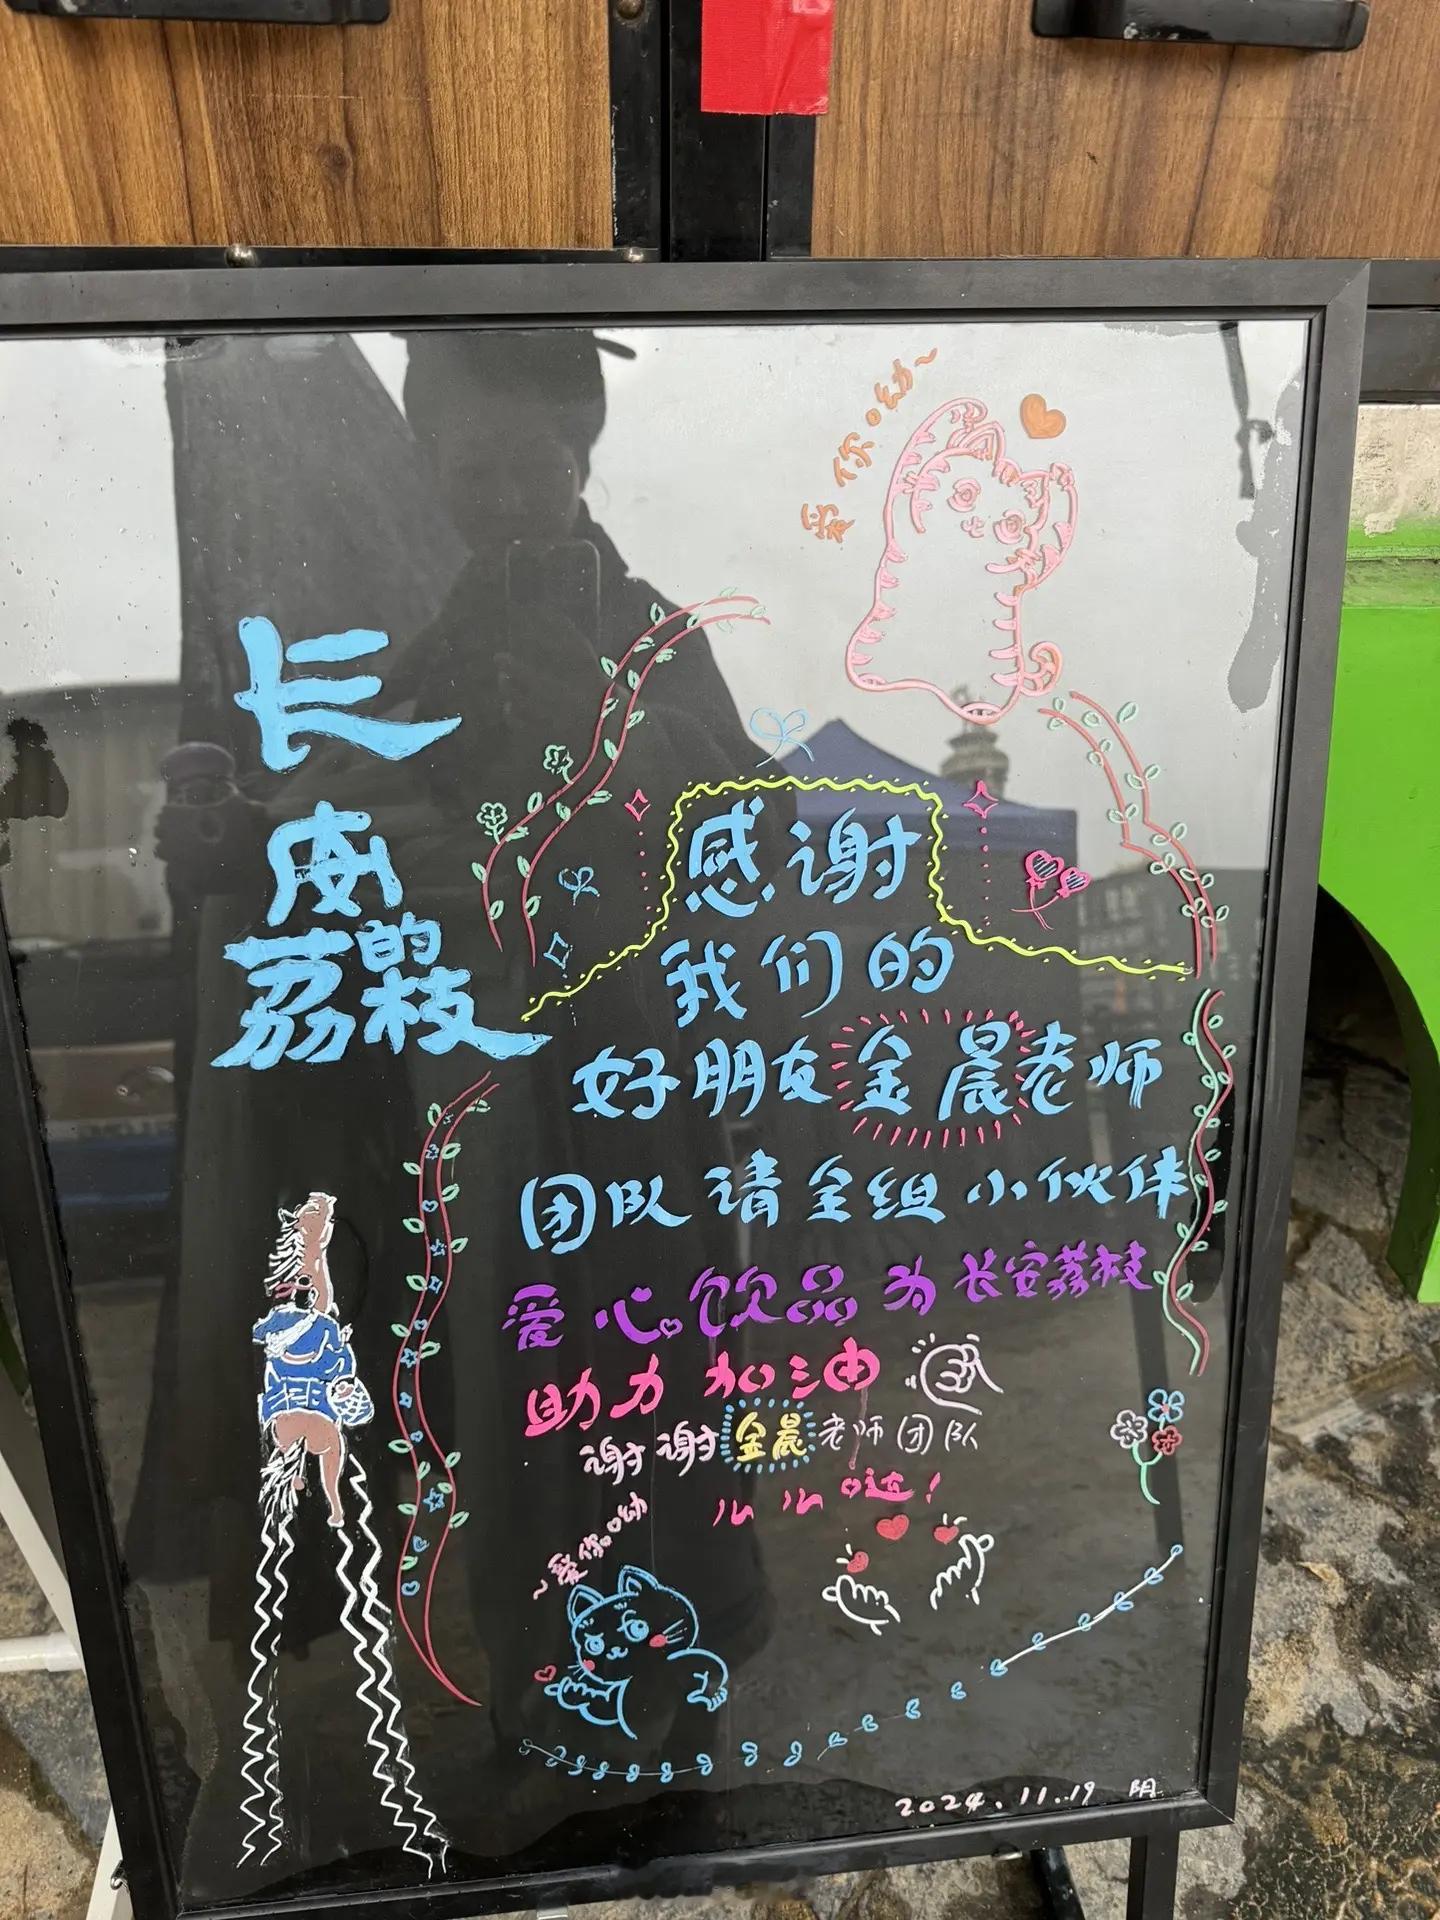 长安的荔枝
爱你呦~
感谢
我们的
好朋友金晨老师
团队请全组小伙伴
爱心饮品为长安荔枝
助力加油
谢谢金晨老师团队
么么哒！
~爱你呦
2024.11.19 阴